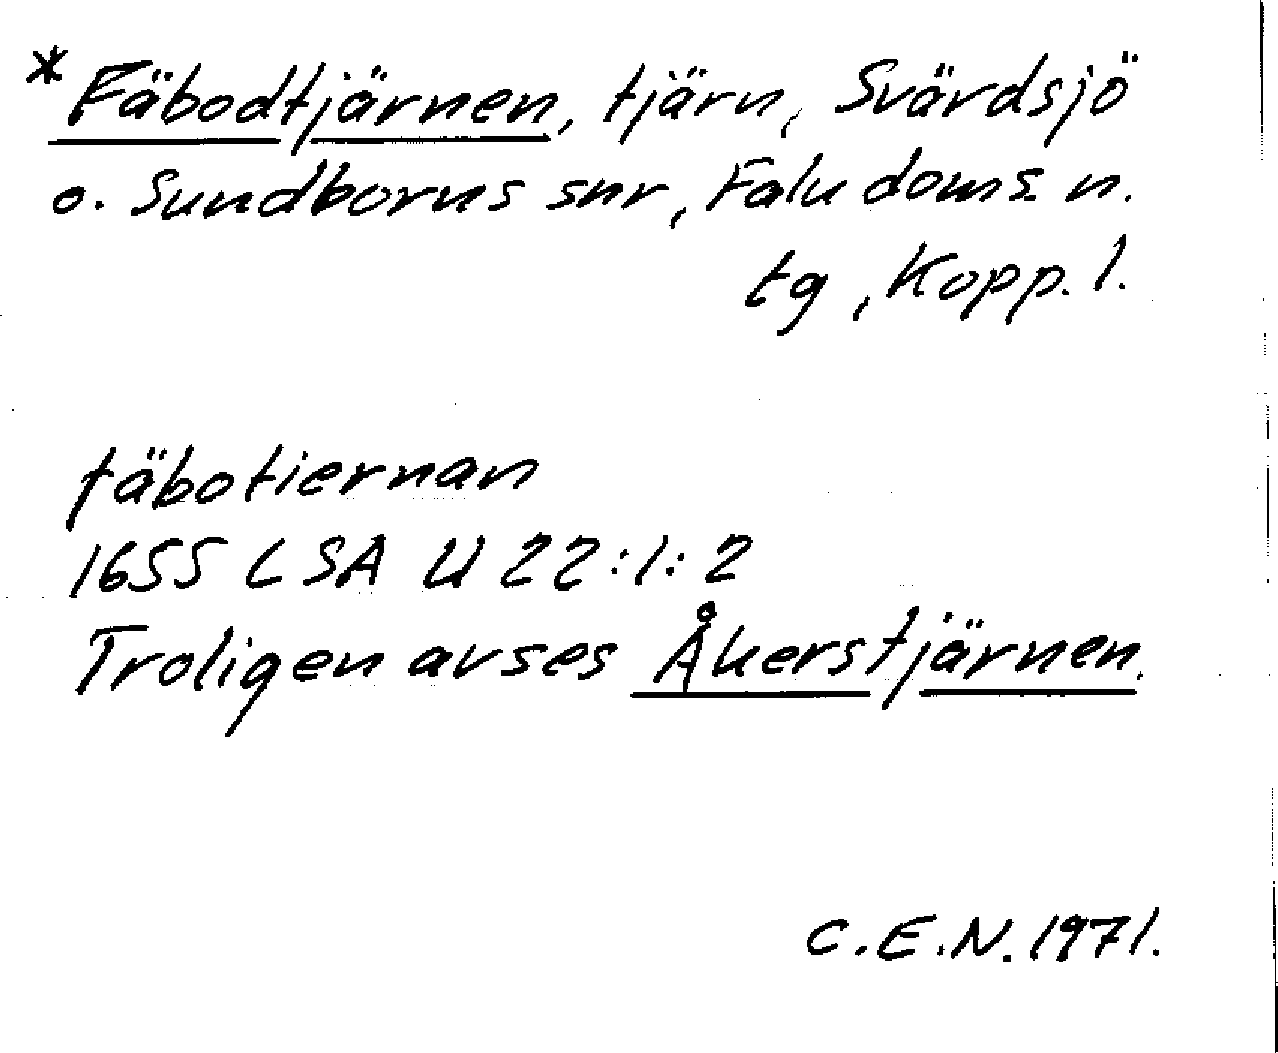 * Fäbodtjärnen, tjärn, Svärdsjö
o. Sundborns snr, Falu doms n.
tg, Kopp. l.
fäbotiernan
1655 LSA U 22:1:2
Troligen avses Åkerstjärnen.
C.E.N. 1971.